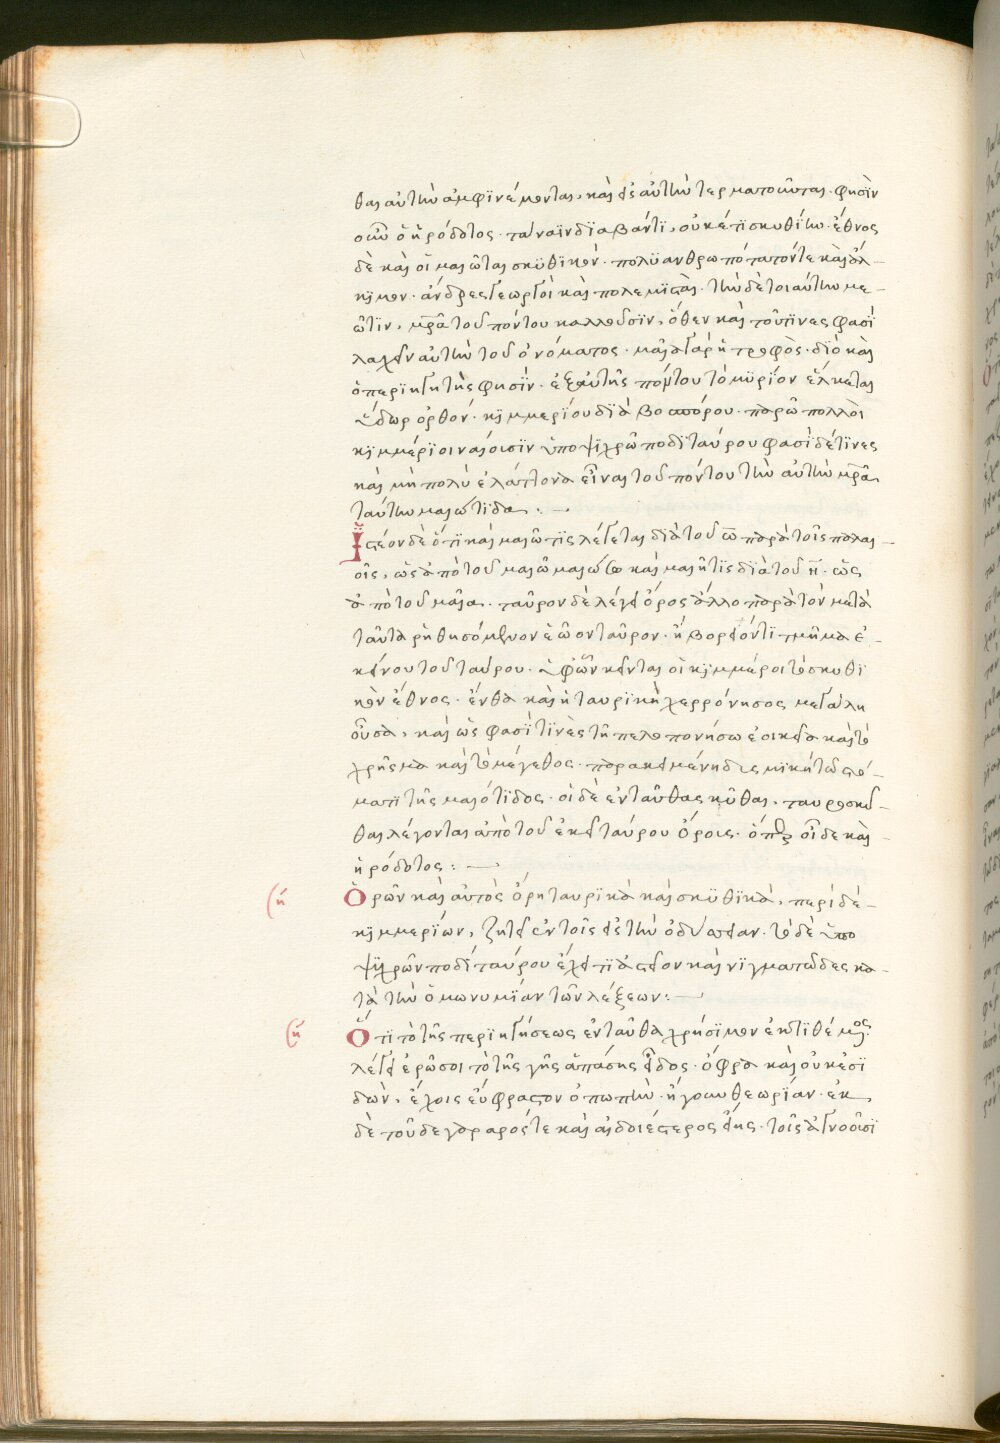 θας αὐτὴν ἀμφινέμονται, καὶ εἰς αὐτὴν τερματοῦνται. φησὶν
οὖν ὁ ἡρόδοτος. τάναϊν διαβάντι, οὐκέτι σκυθίη. ἔθνος
δὲ καὶ οἱ μαιῶται σκυθικὸν. πολυανθρωπότατόν τε καὶ ἄλ-
κιμον. ἄνδρες γεωργοὶ καὶ πολεμισταὶ. τὴν δὲ τοιαύτην μαι-
ῶτιν, μρα τοῦ πόντου καλλοῦσιν, ὅθεν καὶ τοῦ τινες φασὶ
λαχεῖν αὐτὴν τοῦ ὀνόματος. μαῖα γὰρ ἡ τροφὸς. διὸ καὶ
ὁ περιηγητὴς φησὶν. ἐξ αὐτῆς πόντου τὸ μυρίον ἕλκεται
ὕδωρ ὀρθόν. κιμμερίου διὰ βοσπόρου. παρ ᾧ πολλοὶ
κιμμέριοι ναίουσιν ὑπὸ ψυχρῷ ποδὶ ταύρου φασὶ δέ τινες
καὶ μὴ πολὺ ἐλάττονα εἶναι τοῦ πόντου τὴν αὐτὴν μρα
ταύτην μαιώτιδα :
Ἰστέον δὲ ὅτι καὶ μαιῶτις λέγεται διὰ τοῦ ω παρὰ τοῖς παλαι-
οῖς, ὡς ἀπὸ τοῦ μαιῶ μαιώσω καὶ μαιῆτις διὰ τοῦ η. ὡς
ἀπὸ τοῦ μαῖα. ταῦρον δὲ λέγει ὄρος ἄλλο παρὰ τὸν μετὰ
ταῦτα ῥηθησόμενον ἑῶον ταῦρον. ἢ βορειόν τι τμῆμα ἐ-
κείνου τοῦ ταύρου. ὑφ' ὧν κεῖνται οἱ κιμμέριοι τὸ σκυθι
κὸν ἔθνος. ἔνθα καὶ ἡ ταυρικὴ χερρόνησος μεγάλη
οὖσα, καὶ ὡς φασὶ τινὲς τῇ πελοπονήσω ἐοικεῖα κατὰ
χρῆμα καὶ τὸ μέγεθος. παρακειμένη δις μικὴ τῷ στό-
ματι τῆς μαιότιδος. οἱ δὲ ἐνταῦθα σκῦθαι, ταυροσκύ-
θαι λέγονται ἀπὸ τοῦ ἐκεῖ ταύρου ὄρους. ὅπερ οἶδε καὶ
ἡρόδοτος :
Ὁρῶν καὶ αὐτὸς ὄρη ταυρικὰ καὶ σκυθικὰ. περὶ δὲ
κιμμερίων, ζήτει ἐν τοῖς εἰς τὴν ὀδύσσειαν. τὸ δὲ ὑπὸ
ψυχρῶν ποδὶ ταύρου ἔχει τι ἀστεῖον καὶ νίγματῶδες κα-
τὰ τὴν ὁμωνυμίαν τῶν λέξεων :
Ὅτι τὸ τῆς περιηγήσεως ἐνταῦθα χρήσιμον ἐκτιθέμνος
λέγει ἐρῶσοι τὸ τῆς γῆς ἁπάσης εἶδος. ὄφρα καὶ οὐκ ἐσι
δὼν, ἔχοις εὔφραστον ὀπωπὴν. ἤγουν θεωρίαν. ἐκ
δὲ τοῦ δε γεραρός τε καὶ αἰδοιέστερος εἴης. τοῖς ἀγνοοῦσι